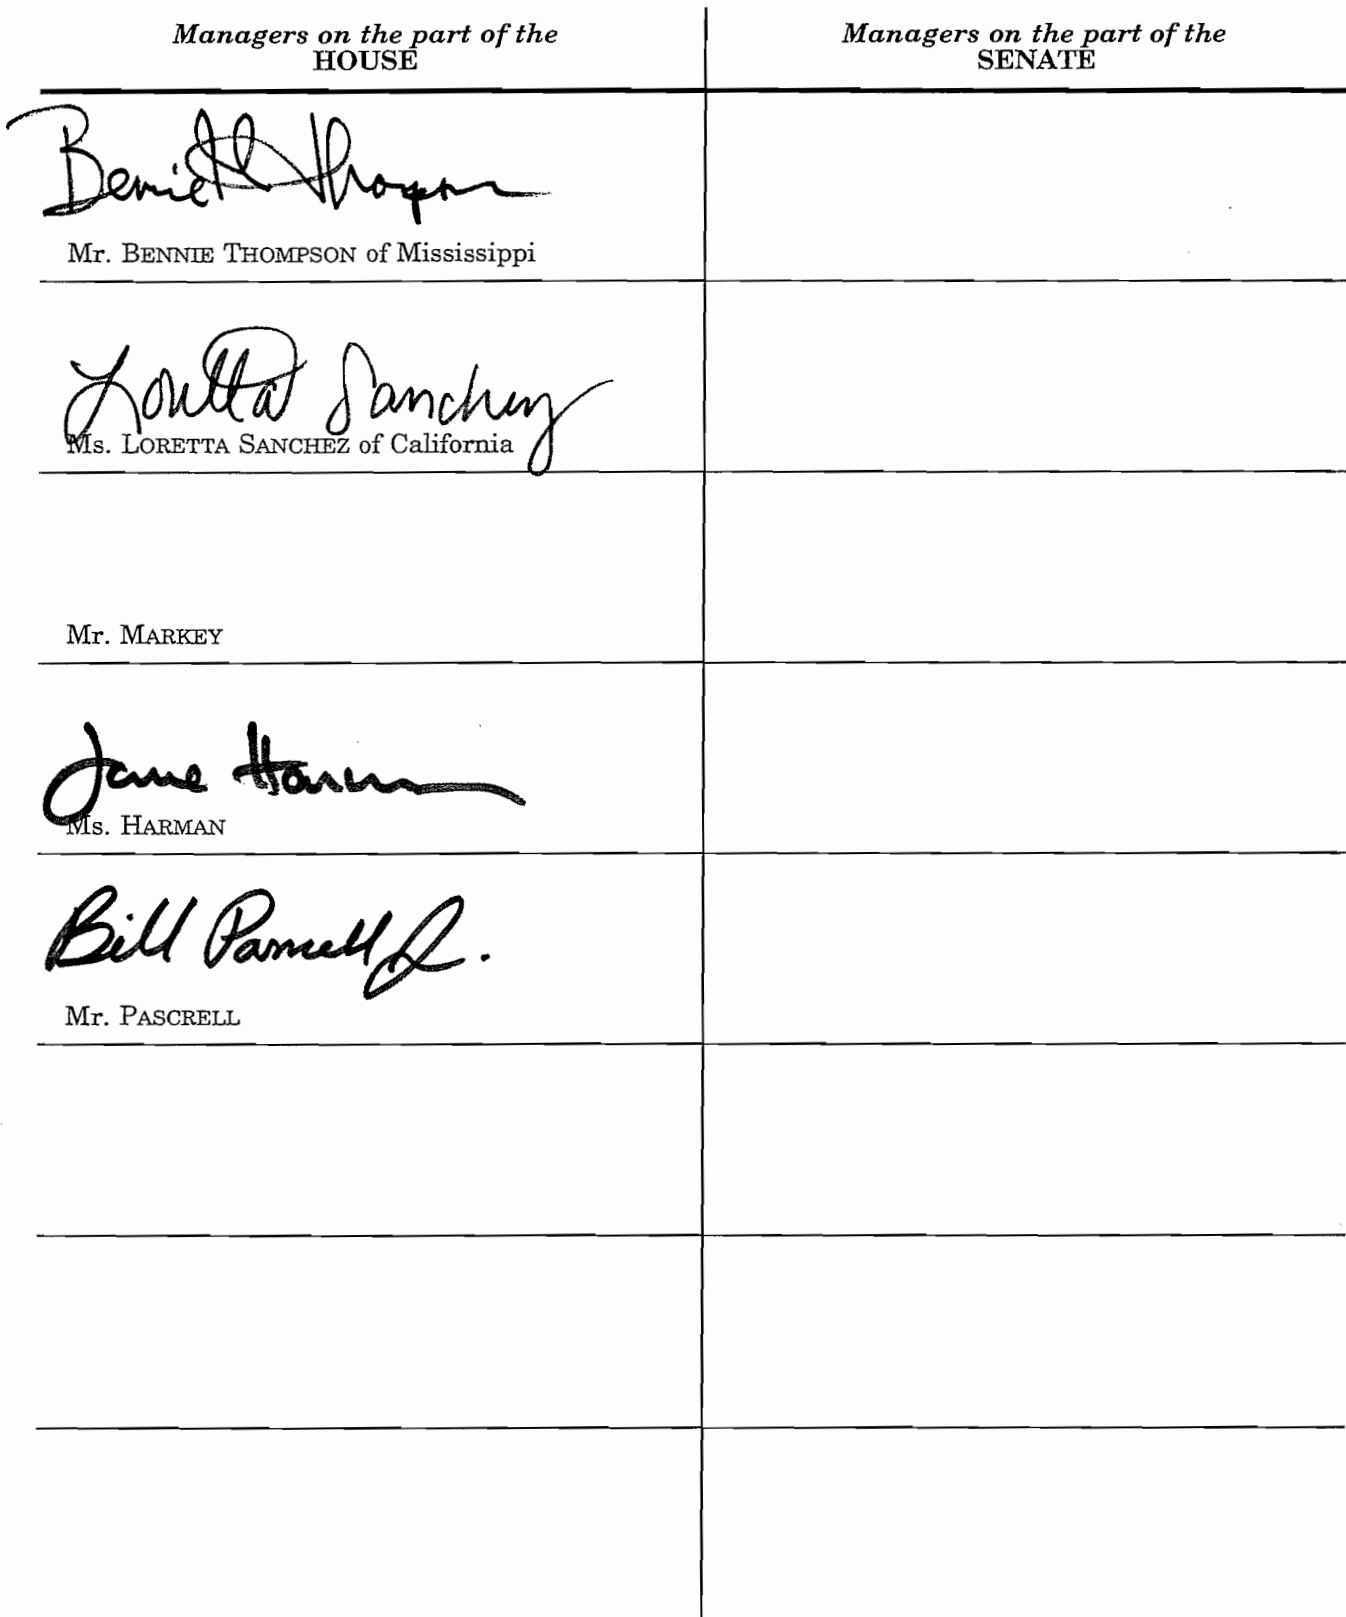 Managers on the part of the
HOUSE
Managers on the part of the
SENATE
Bennie G. Thompson
Mr. BENNIE THOMPSON of Mississippi
Loretta Sanchez
Ms. LORETTA SANCHEZ of California
Mr. MARKEY
Jane Harman
Ms. HARMAN
Bill Pascrell Jr.
Mr. PASCRELL